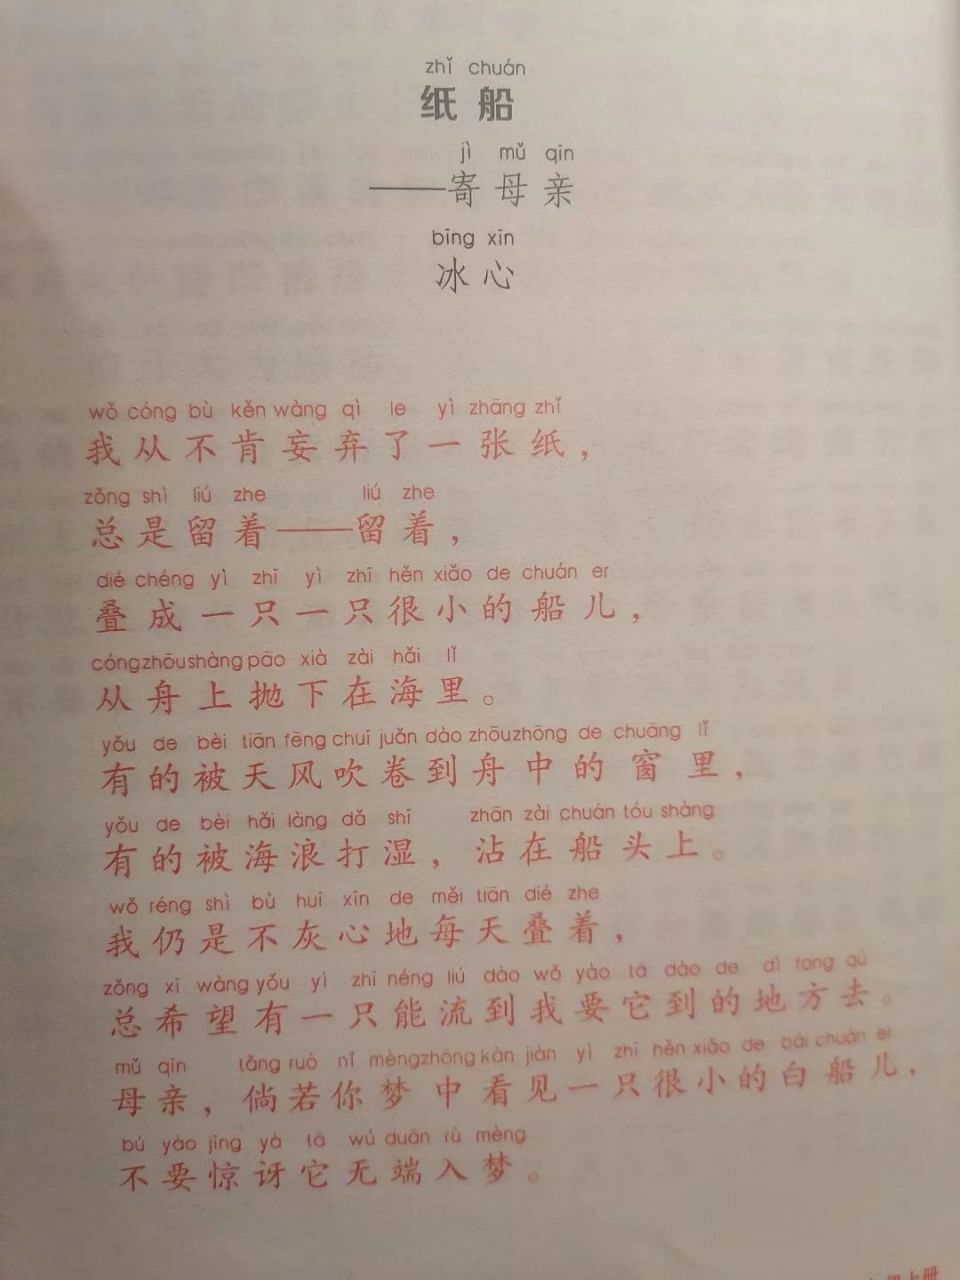 zhǐ chuán
纸船
jì mǔ qīn
——寄母亲
bīng xīn
冰心
wǒ cóng bù kěn wàng qì le yì zhāng zhǐ
我从不肯妄弃了一张纸，
zǒng shì liú zhe liú zhe
总是留着——留着，
dié chéng yì zhī yì zhī hěn xiǎo de chuán er
叠成一只一只很小的船儿，
cóng zhōu shàng pāo xià zài hǎi lǐ
从舟上抛下在海里。
yǒu de bèi tiān fēng chuī juǎn dào zhōu zhōng de chuāng lǐ
有的被天风吹卷到舟中的窗里，
yǒu de bèi hǎi làng dǎ shī zhān zài chuán tóu shàng
有的被海浪打湿，沾在船头上。
wǒ réng shì bù huī xīn de měi tiān dié zhe
我仍是不灰心地每天叠着，
zǒng xī wàng yǒu yì zhī néng liú dào wǒ yào tā dào de dì fang qù
总希望有一只能流到我要它到的地方去。
mǔ qīn tǎng ruò nǐ mèng zhōng kàn jiàn yì zhī hěn xiǎo de bái chuán er
母亲，倘若你梦中看见一只很小的白船儿，
bú yào jīng yà tā wú duān rù mèng
不要惊讶它无端入梦。
上册